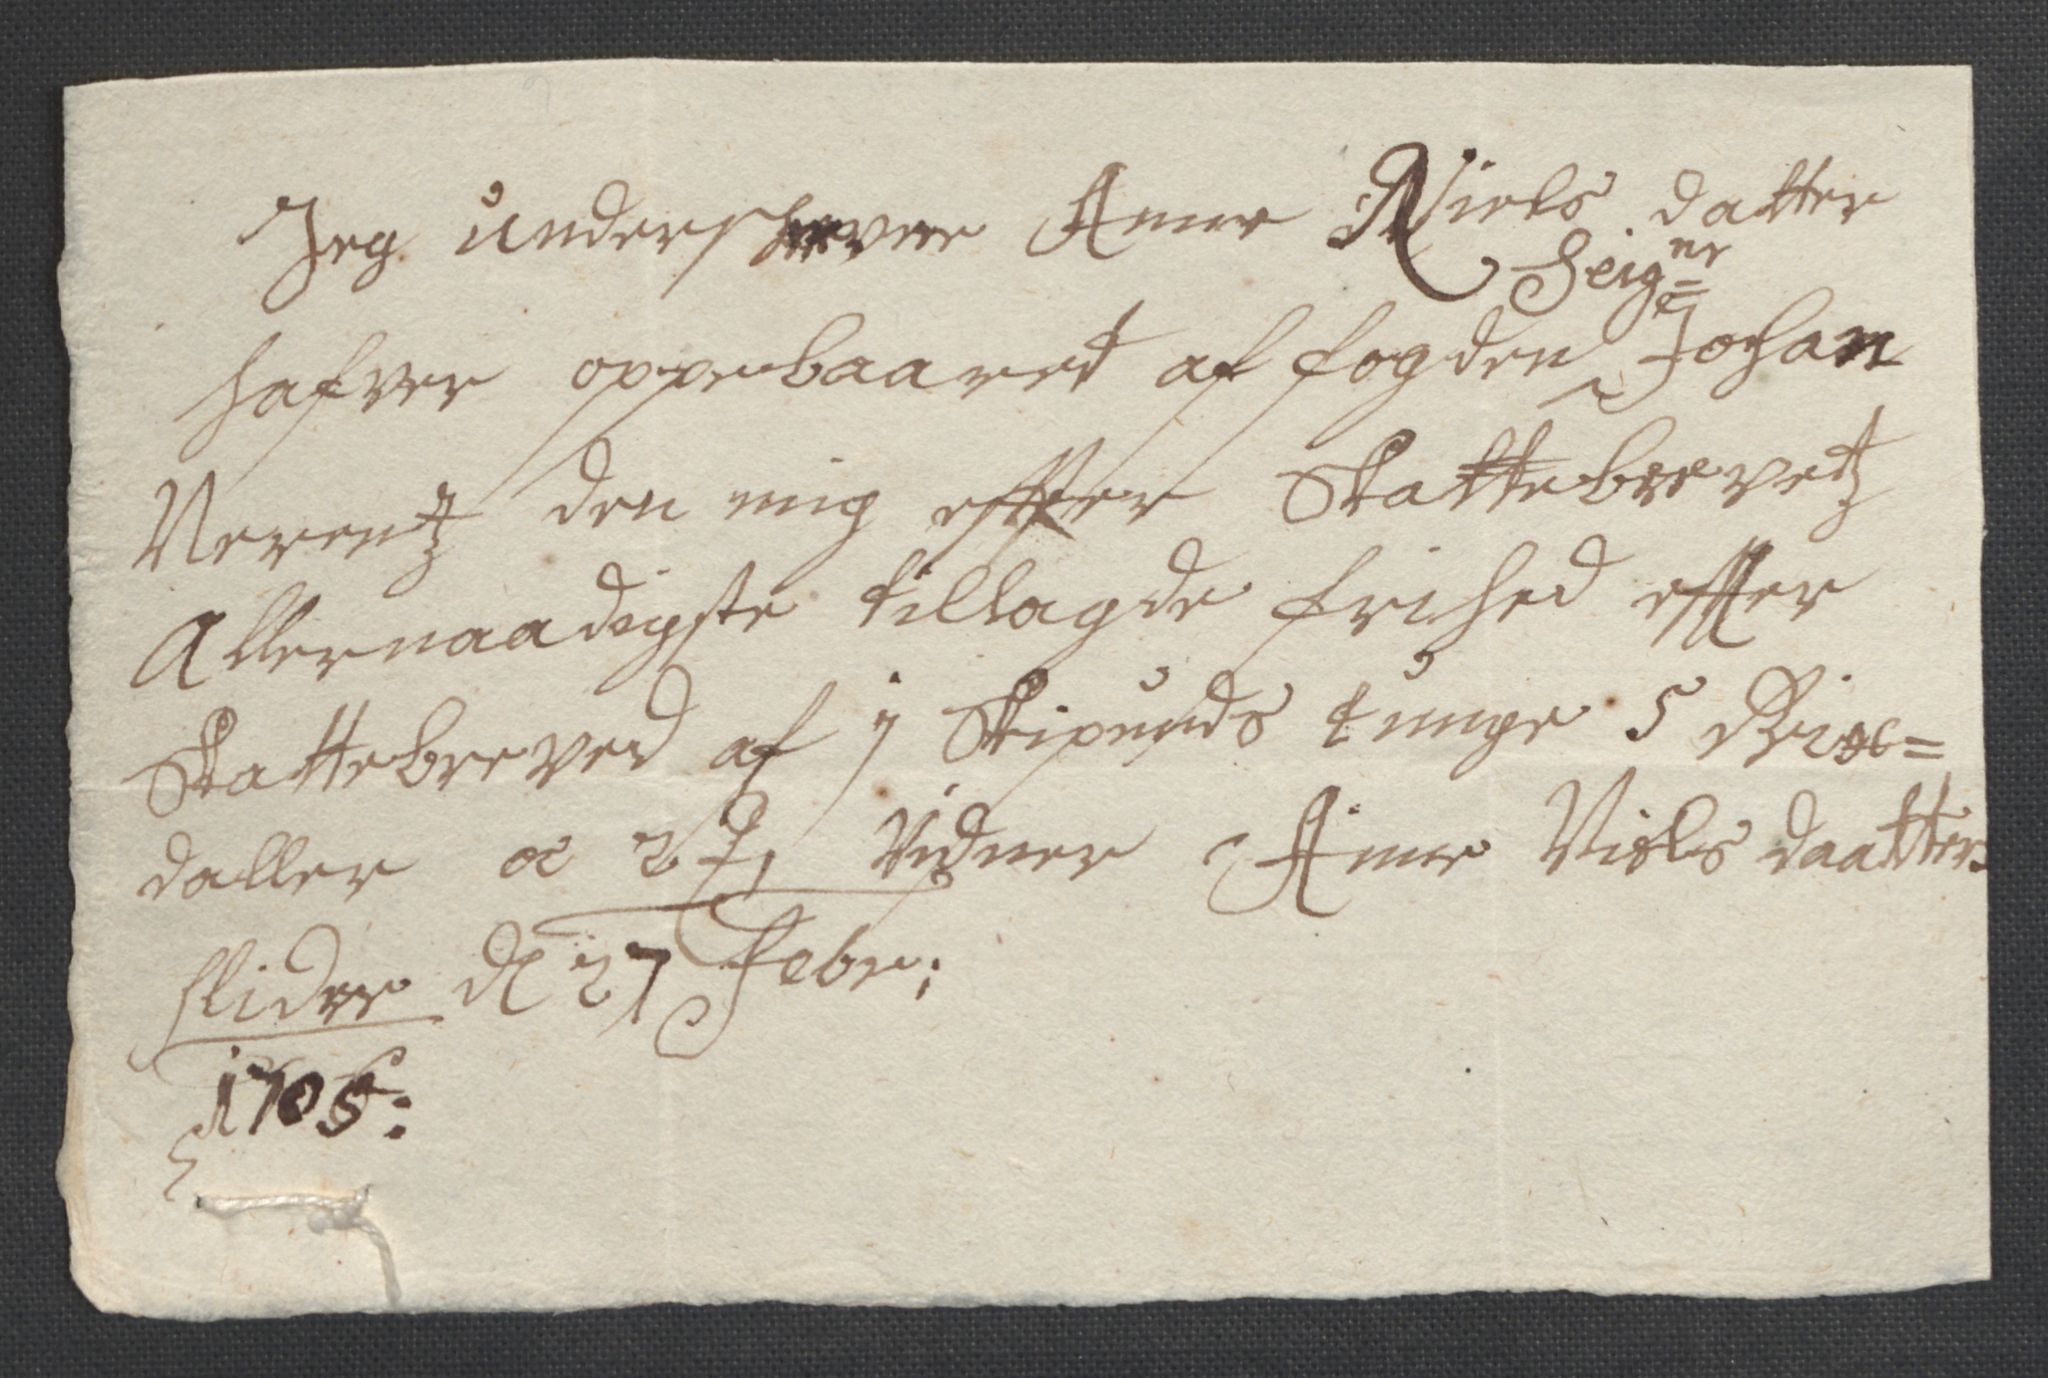 Jeg underschrevne Anne Niels datter
hafver oppebaaret af fogden Seigne^ur Johan
Verentz den mig effter Skattebrevetz
Allernaadigste tillagde frihed effter
Skattebreved af j Skipunds tunge 5 Rix=
daller Vidner Anne Niels daatter
Slidre d 27 Febr:
1705: